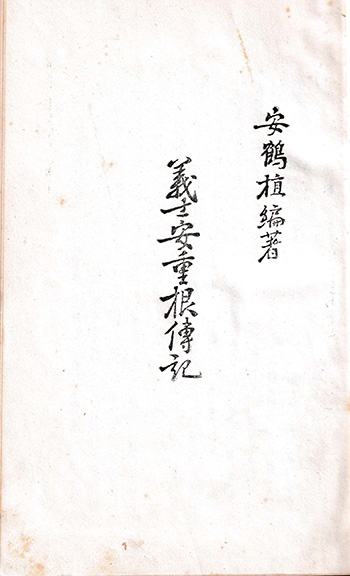 安鶴植編著
義士安重根傳記